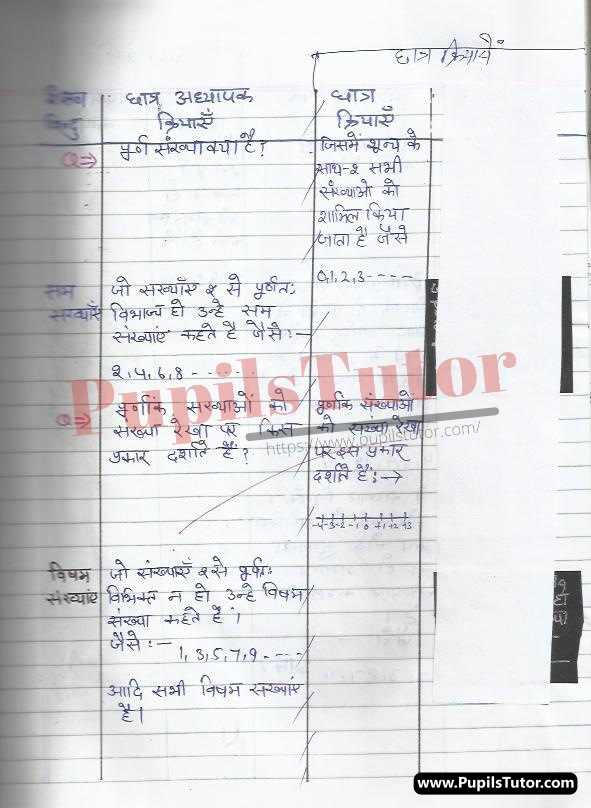 छात्र क्रियायें
शिक्षण बिन्दु
छात्र अध्यापक
क्रियाएँ
छात्र
क्रियाएँ
Q⇒
पूर्ण संख्या क्या है?
जिसमें शून्य के
साथ-२ सभी
संख्याओ को
शामिल किया
जाता है जैसे
0,1,2,3----
सम
संख्याएँ
जो संख्याएँ २ से पूर्णतः
विभाज्य हो उन्हे सम
संख्याएं कहते है जैसे:-
2,4,6,8-......
Q⇒
पूर्णांक संख्याओं को
संख्या रेखा पर किस
प्रकार दर्शाते है?
पूर्णांक संख्याओं
को संख्या रेखा
पर इस प्रकार
दर्शाते है:→
-4 -3 -2 -1 0 +1 +2 +3
विषम
संख्याएं
जो संख्याएँ २ से पूर्णतः
विभिक्त न हो उन्हे विषम
संख्या कहते है।
जैसे:-
1,3,5,7,9----
आदि सभी विषम संख्याएं
है।
PupilsTutor
https://www.pupilstutor.com/
www.PupilsTutor.com